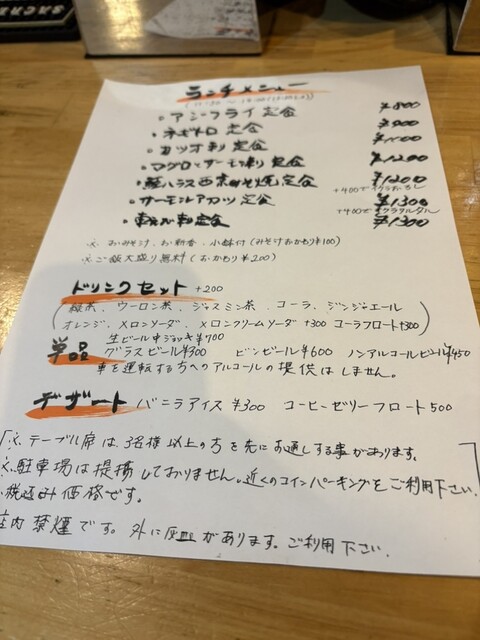 ランチメニュー
アジフライ定食 ¥800
ネギトロ定食 ¥900
カツオ刺定食
マグロとサーモン刺し定食 ¥1200
鮭ハラス西京みそ焼定食 ¥1200
サーモントアカツ定食 ¥1300
刺定食 ¥1300
※ おみそ汁、お新香、小鉢付(みそ汁おかわり¥100)
※ ご飯大盛り無料(おかわり¥200)
ドリンクセット +200
緑茶、ウーロン茶、ジャスミン茶、コーラ、ジンジャエール
オレンジ、メロンソーダ、メロンクリームソーダ +300 コーラフロート+300
生ビール中ジョッキ¥700
単品 グラスビール¥300 ビンビール¥600 ノンアルコールビール¥450
車を運転する方へのアルコールの提供はしません。
デザート バニラアイス ¥300 コーヒーゼリーフロート 500
※、テーブル席は、3名様以上の方を先にお通しする事があります。
※、駐車場は提携しておりません。近くのコインパーキングをご利用下さい。
税込み価格です。
店内禁煙です。外に灰皿があります。ご利用下さい。